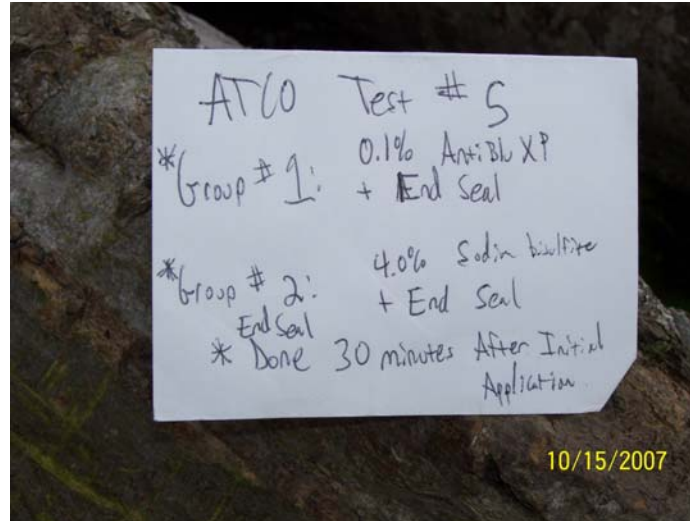 ATCO Test # 5
* Group # 1: 0.1% AntiBlu XP
+ End Seal
* Group # 2: 4.0% Sodim bisulfite
+ End Seal
End Seal
* Done 30 minutes After Initial
Application.
10/15/2007